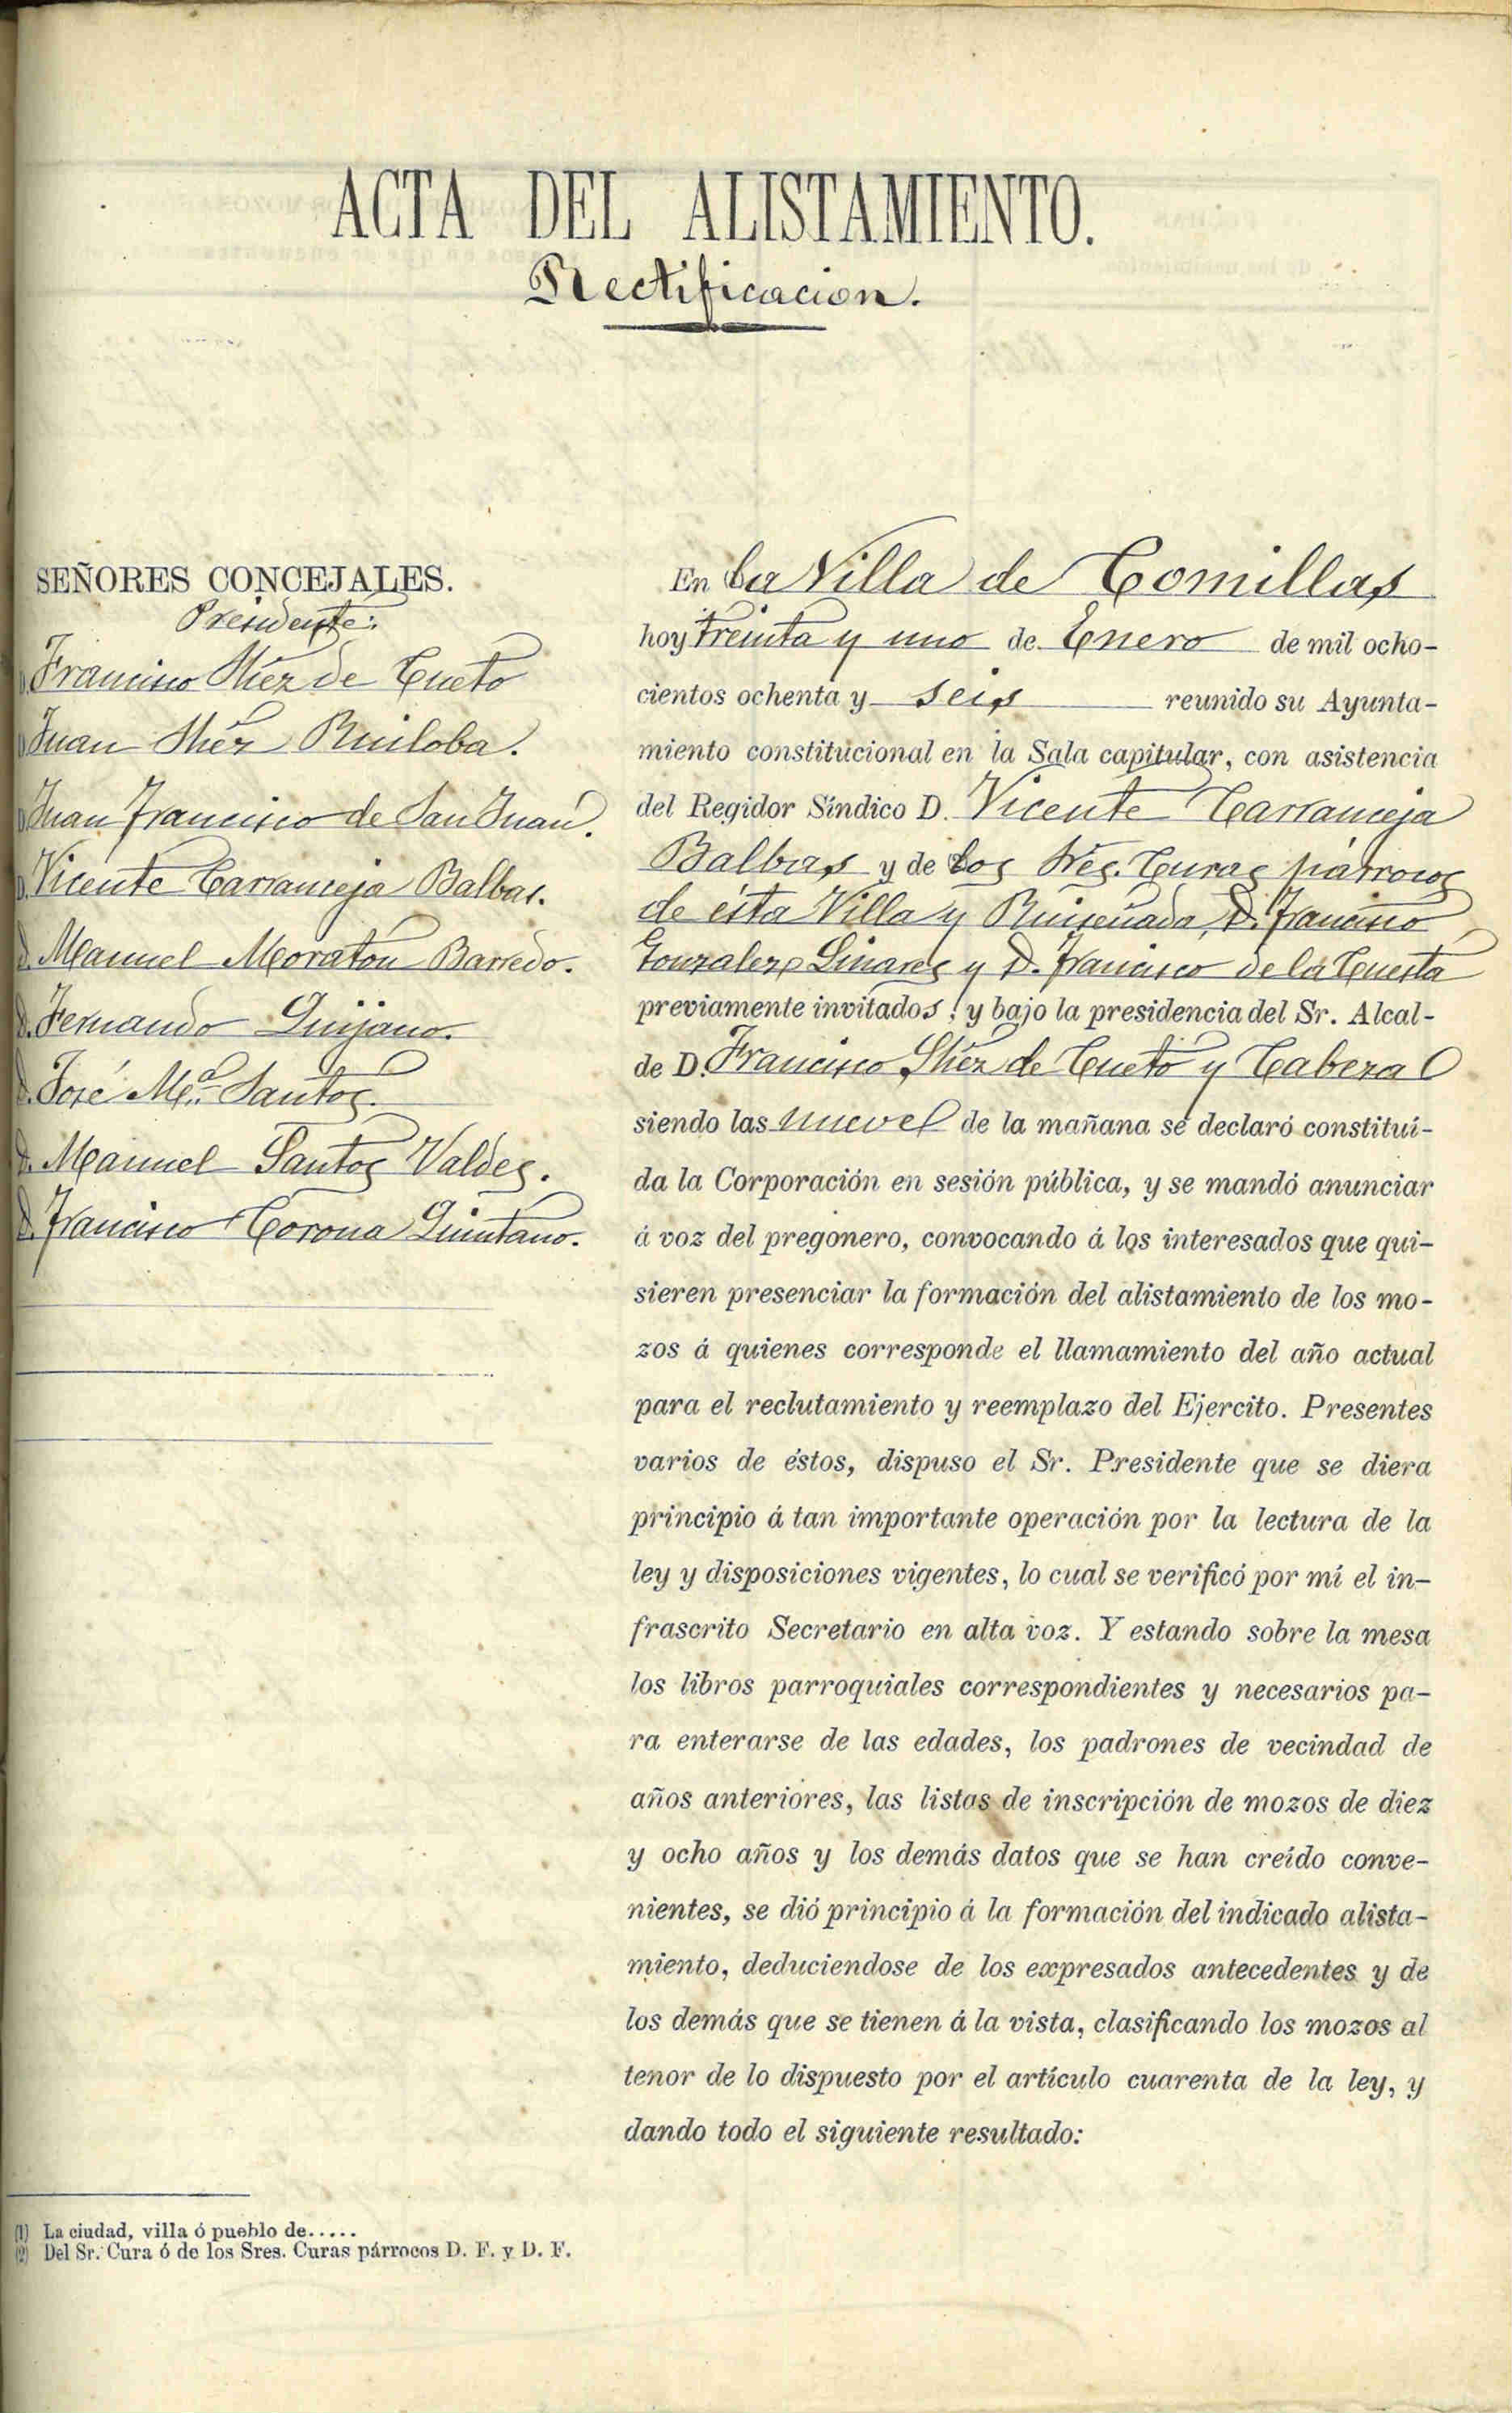 ACTA DEL ALISTAMIENTO.
Rectificacion.
SEÑORES CONCEJALES.
Presidente:
D. Francisco de Cueto
D. Juan Ruiloba.
D. Juan Francisco de San Juan.
D. Vicente Carranceja Balbas.
D. Manuel Moratón Barredo.
D. Fernando Quijano.
D. José M.ª Santos.
D. Manuel Santos Valdes.
D. Francisco Corona Quintano.
En la Villa de Comillas
hoy treinta y uno de Enero de mil ocho-
cientos ochenta y seis reunido su Ayunta-
miento constitucional en la Sala capitular, con asistencia
del Regidor Síndico D. Vicente Carranceja
Balbas y de los Sres. Curas párrocos
de ésta Villa y Ruiseñada, D. Francisco
Gonzalez Linares y D. Francisco de la Cuesta
previamente invitados, y bajo la presidencia del Sr. Alcal-
de D. Francisco de Cueto y Cabeza
siendo las nueve de la mañana se declaró constituí-
da la Corporación en sesión pública, y se mandó anunciar
á voz del pregonero, convocando á los interesados que qui-
sieren presenciar la formación del alistamiento de los mo-
zos á quienes corresponde el llamamiento del año actual
para el reclutamiento y reemplazo del Ejercito. Presentes
varios de éstos, dispuso el Sr. Presidente que se diera
principio á tan importante operación por la lectura de la
ley y disposiciones vigentes, lo cual se verificó por mí el in-
frascrito Secretario en alta voz. Y estando sobre la mesa
los libros parroquiales correspondientes y necesarios pa-
ra enterarse de las edades, los padrones de vecindad de
años anteriores, las listas de inscripción de mozos de diez
y ocho años y los demás datos que se han creído conve-
nientes, se dió principio á la formación del indicado alista-
miento, deduciendose de los expresados antecedentes y de
los demás que se tienen á la vista, clasificando los mozos al
tenor de lo dispuesto por el artículo cuarenta de la ley, y
dando todo el siguiente resultado:
(1) La ciudad, villa ó pueblo de.....
(2) Del Sr. Cura ó de los Sres. Curas párrocos D. F. y D. F.